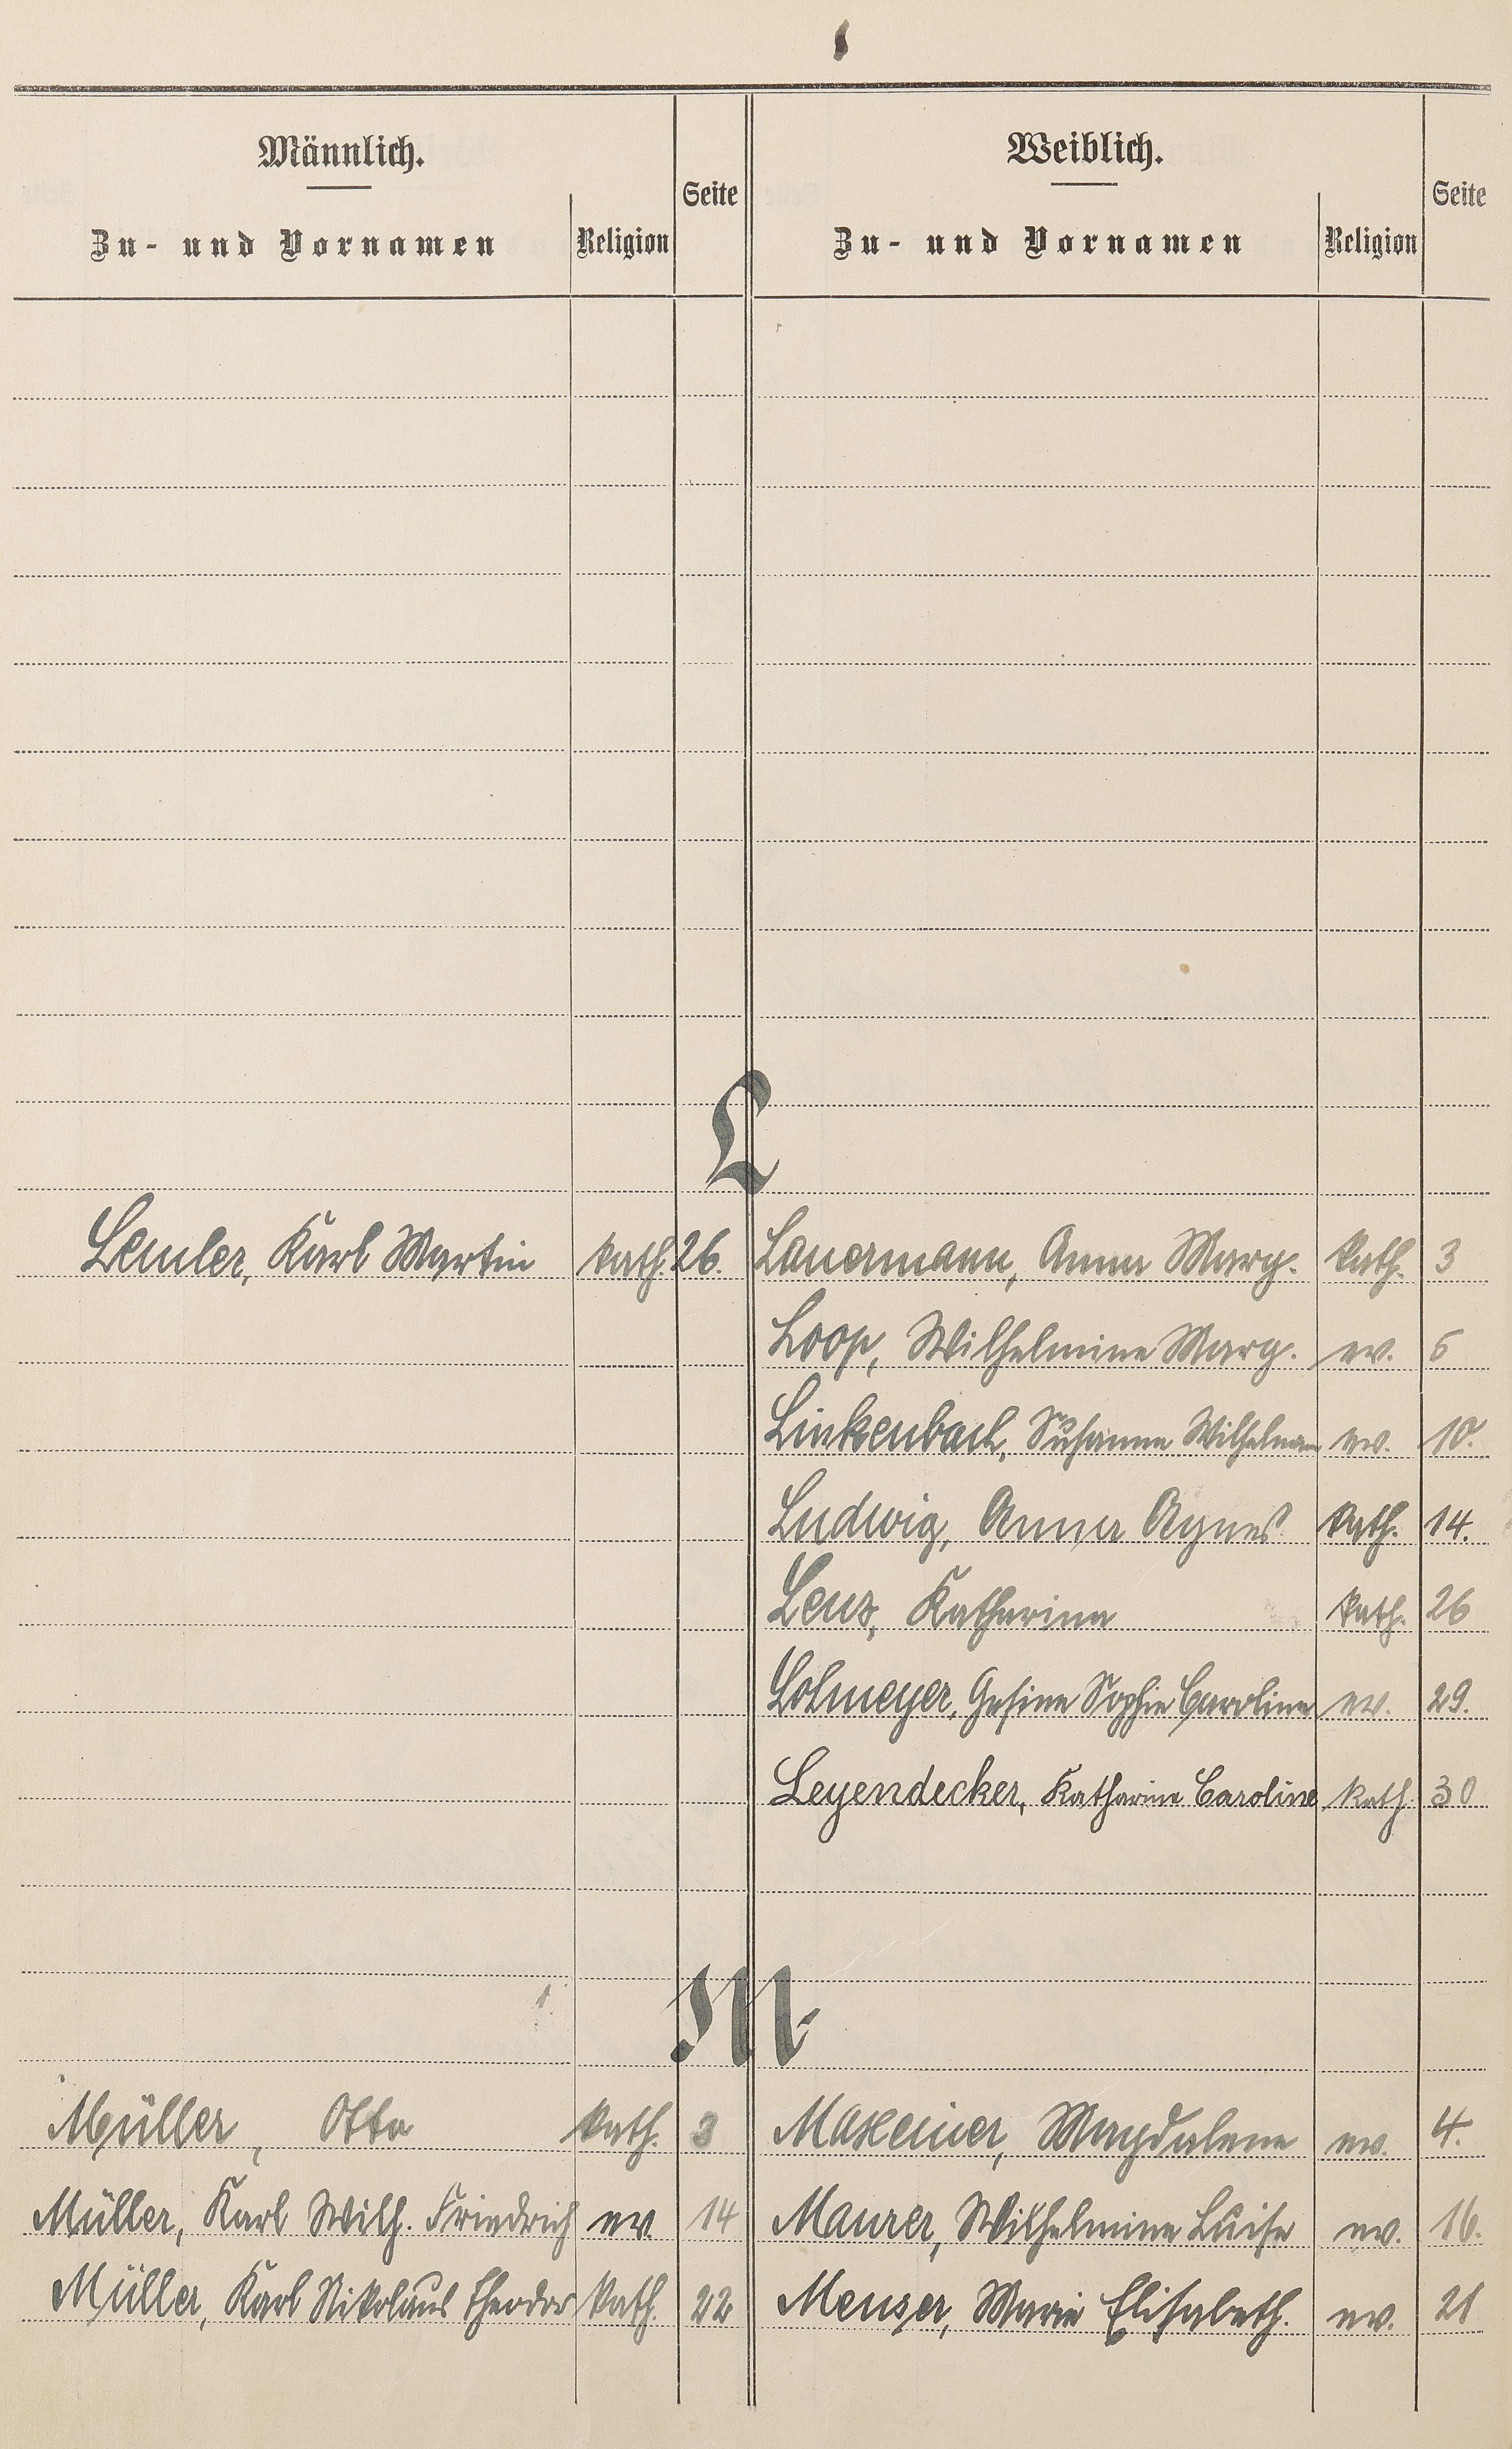 Männlich.
Zu- und Vornamen
Religion
Seite
Weiblich.
Zu- und Vornamen
Religion
Seite
L
Lemler, Karl Martin kath. 26. Lauermann, Anna Marg. kath. 3
Loop, Wilhelmine Marg. ev. 5
Linkenbach, Susanna ev. 10.
Ludwig, Anna Agnes kath. 14.
Lenz, Katharina kath. 26
Lohmeyer, Gesine Sophie Caroline ev. 29.
Leyendecker, Katharina Caroline kath 30
M
Müller, Otto kath. 3 Maxeiner, Magdalene ev. 4.
Müller, Karl Wilh. Friedrich ev. 14 Maurer, Wilhelmine Luise ev. 16.
Müller, Karl Nikolaus Theodor kath. 22 Menser, Marie Elisabeth. ev. 21